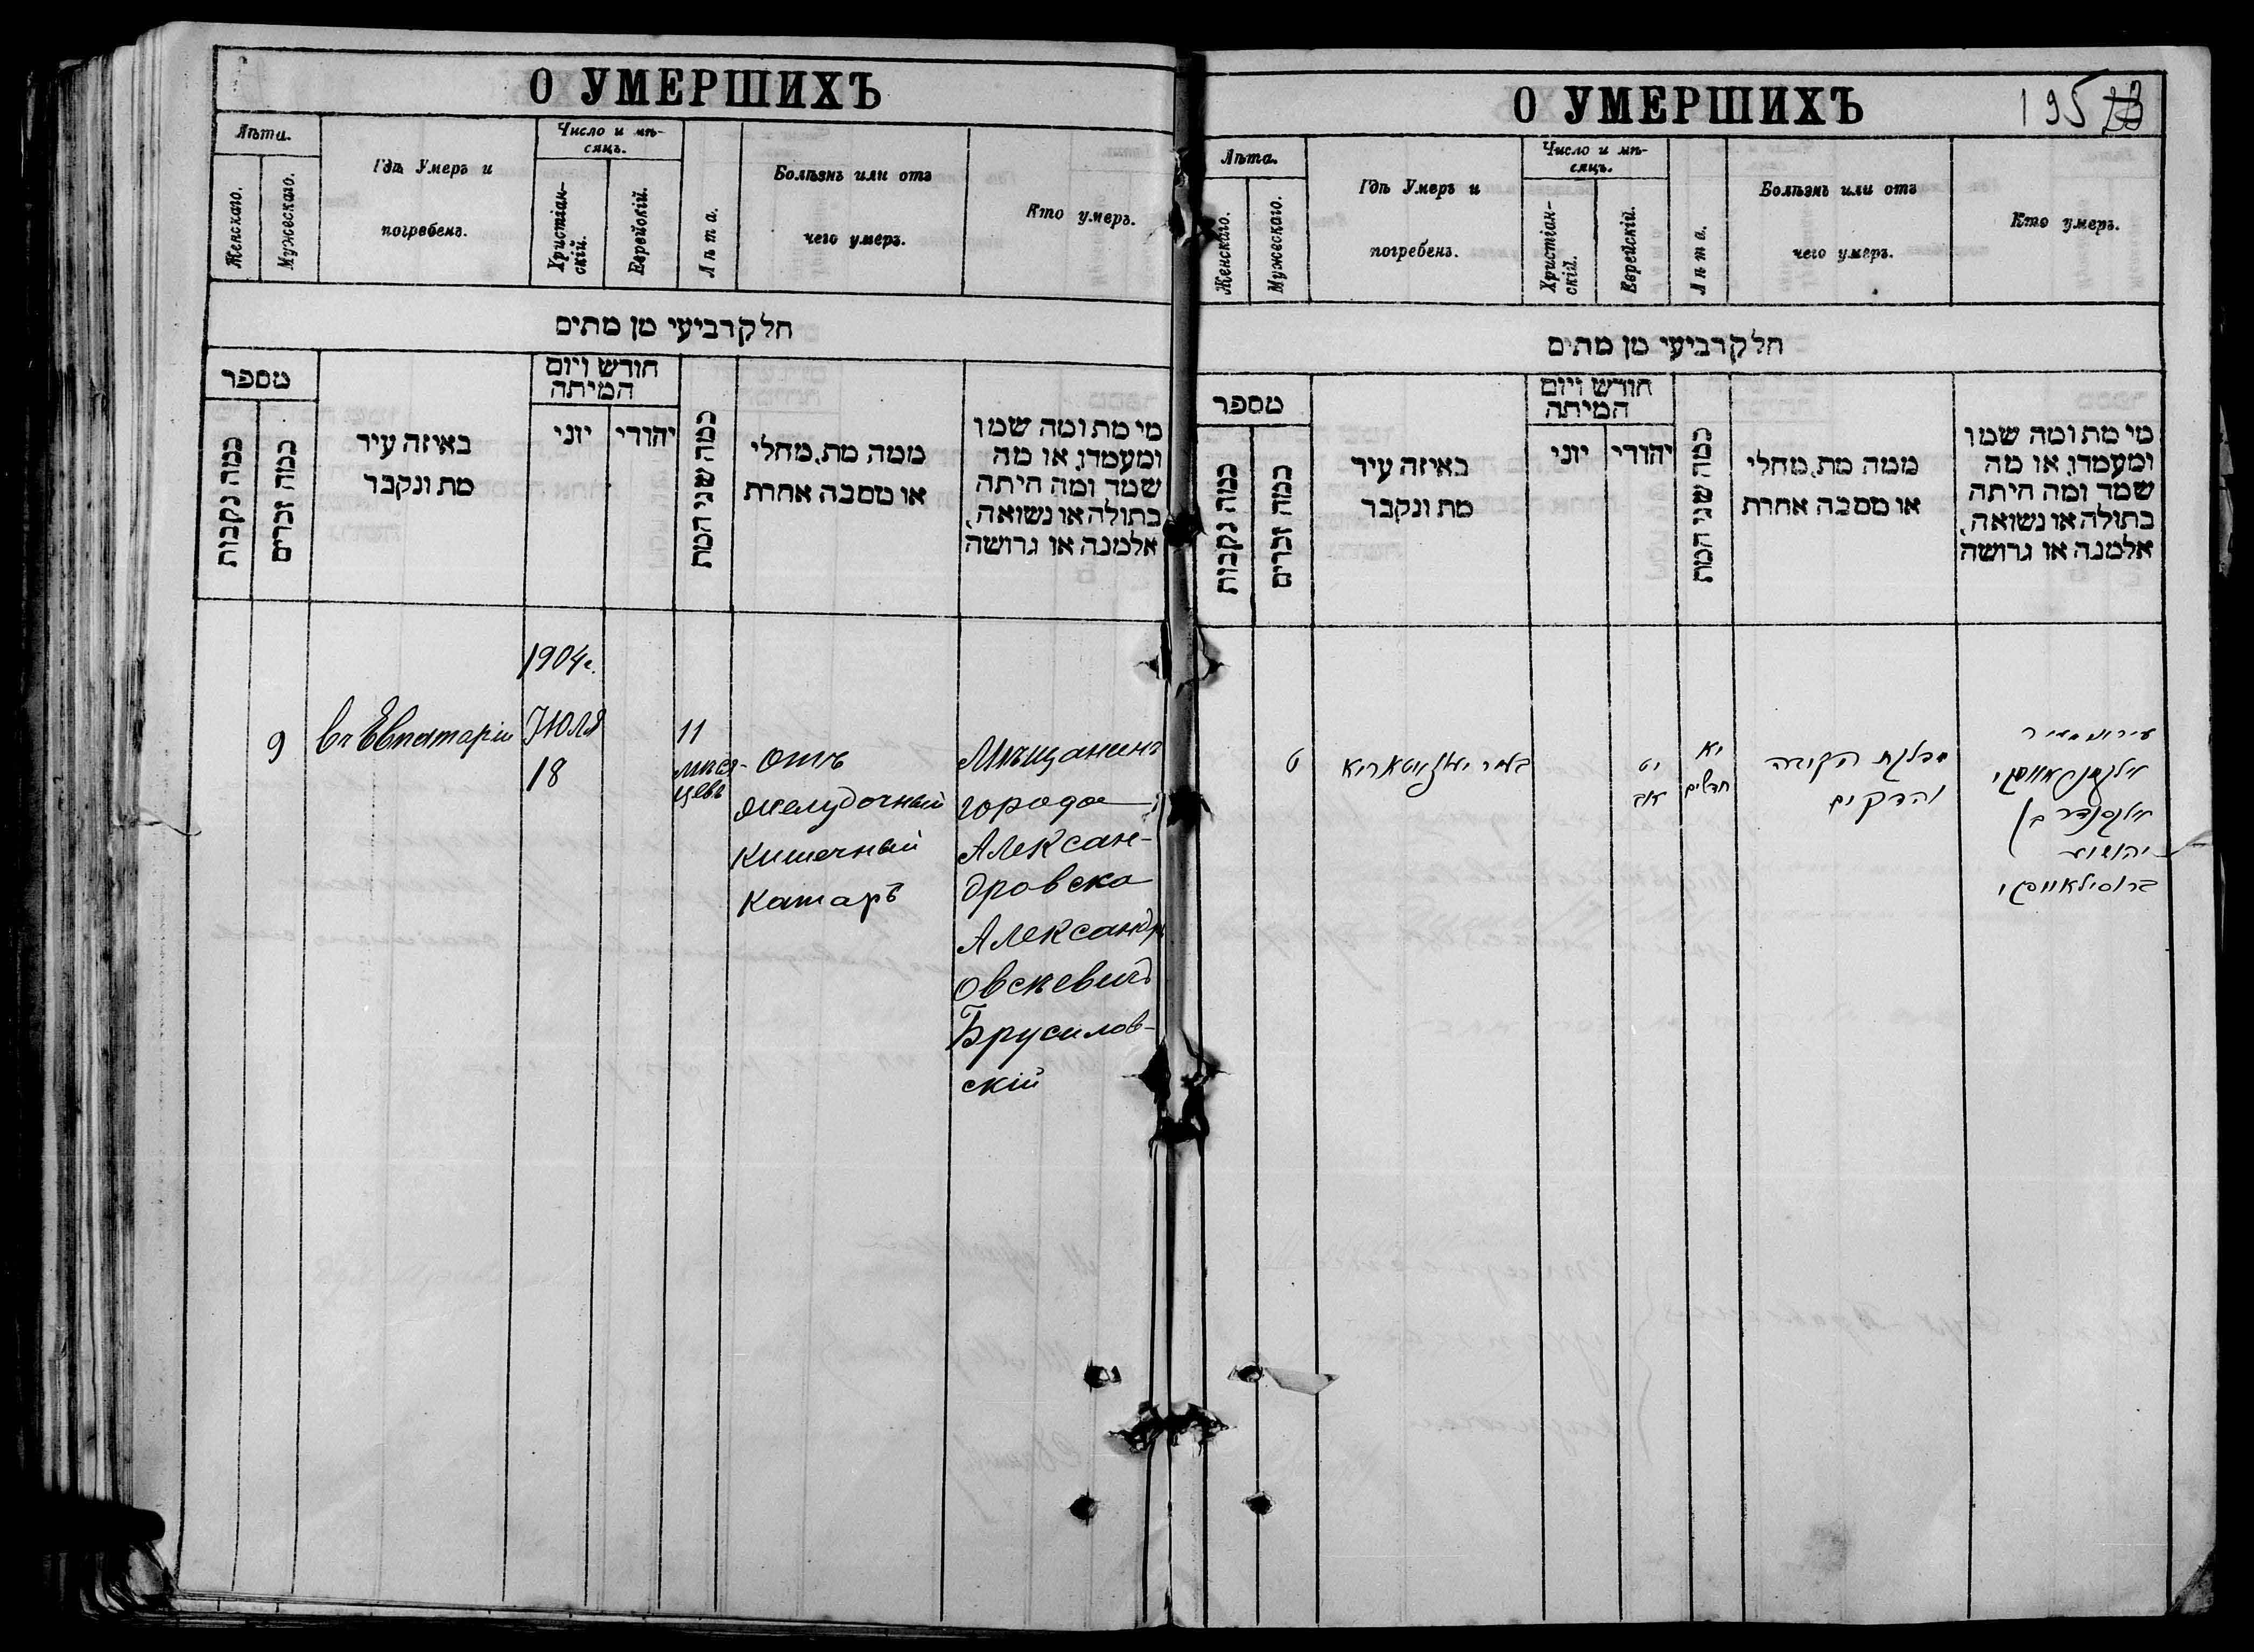 О УМЕРШИХЪ
Лѣта.
Женскаго.
Мужескаго.
Гдѣ Умеръ и
погребенъ.
Число и мѣ-
сяцъ.
Христіан-
скій.
Еврейскій.
Лѣта.
Болѣзнь или отъ
чего умеръ.
Кто умеръ.
חלק רביעי מן מתים
מספר
כמה נקבות
כמה זכרים
באיזה עיר
מת ונקבר
חודש ויום
המיתה
יוני
יהודי
כמה שני המת
ממה מת, מחלי
או מסבה אחרת
מי מת ומה שמו
ומעמדו, או מה
שמה ומה היתה
בתולה או נשואה,
אלמנה או גרושה
9
въ Евпаторіи
1904 г.
Іюля
18
11
мѣся-
цевъ
отъ
желудочный
кишечный
катаръ
Мѣщанинъ
города
Алексан-
дровска
Александръ
Овсѣевичъ
Брусилов-
скій
О УМЕРШИХЪ
195
Лѣта.
Женскаго.
Мужескаго.
Гдѣ Умеръ и
погребенъ.
Число и мѣ-
сяцъ.
Христіан-
скій.
Еврейскій.
Лѣта.
Болѣзнь или отъ
чего умеръ.
Кто умеръ.
חלק רביעי מן מתים
מספר
כמה נקבות
כמה זכרים
באיזה עיר
מת ונקבר
חודש ויום
המיתה
יוני
יהודי
כמה שני המת
ממה מת, מחלי
או מסבה אחרת
מי מת ומה שמו
ומעמדו, או מה
שמה ומה היתה
בתולה או נשואה,
אלמנה או גרושה
ט
יט
אב
יא
חדשים
הקיבה
והדקים
אלכסנדר ב׳
יהושע
ברוסילאווסקי